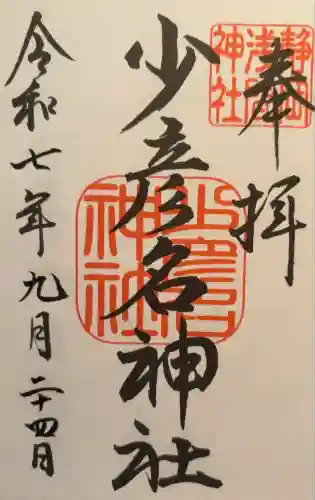 奉拝
静岡
浅間
神社
少彦名神社
神社
令和七年九月二十四日